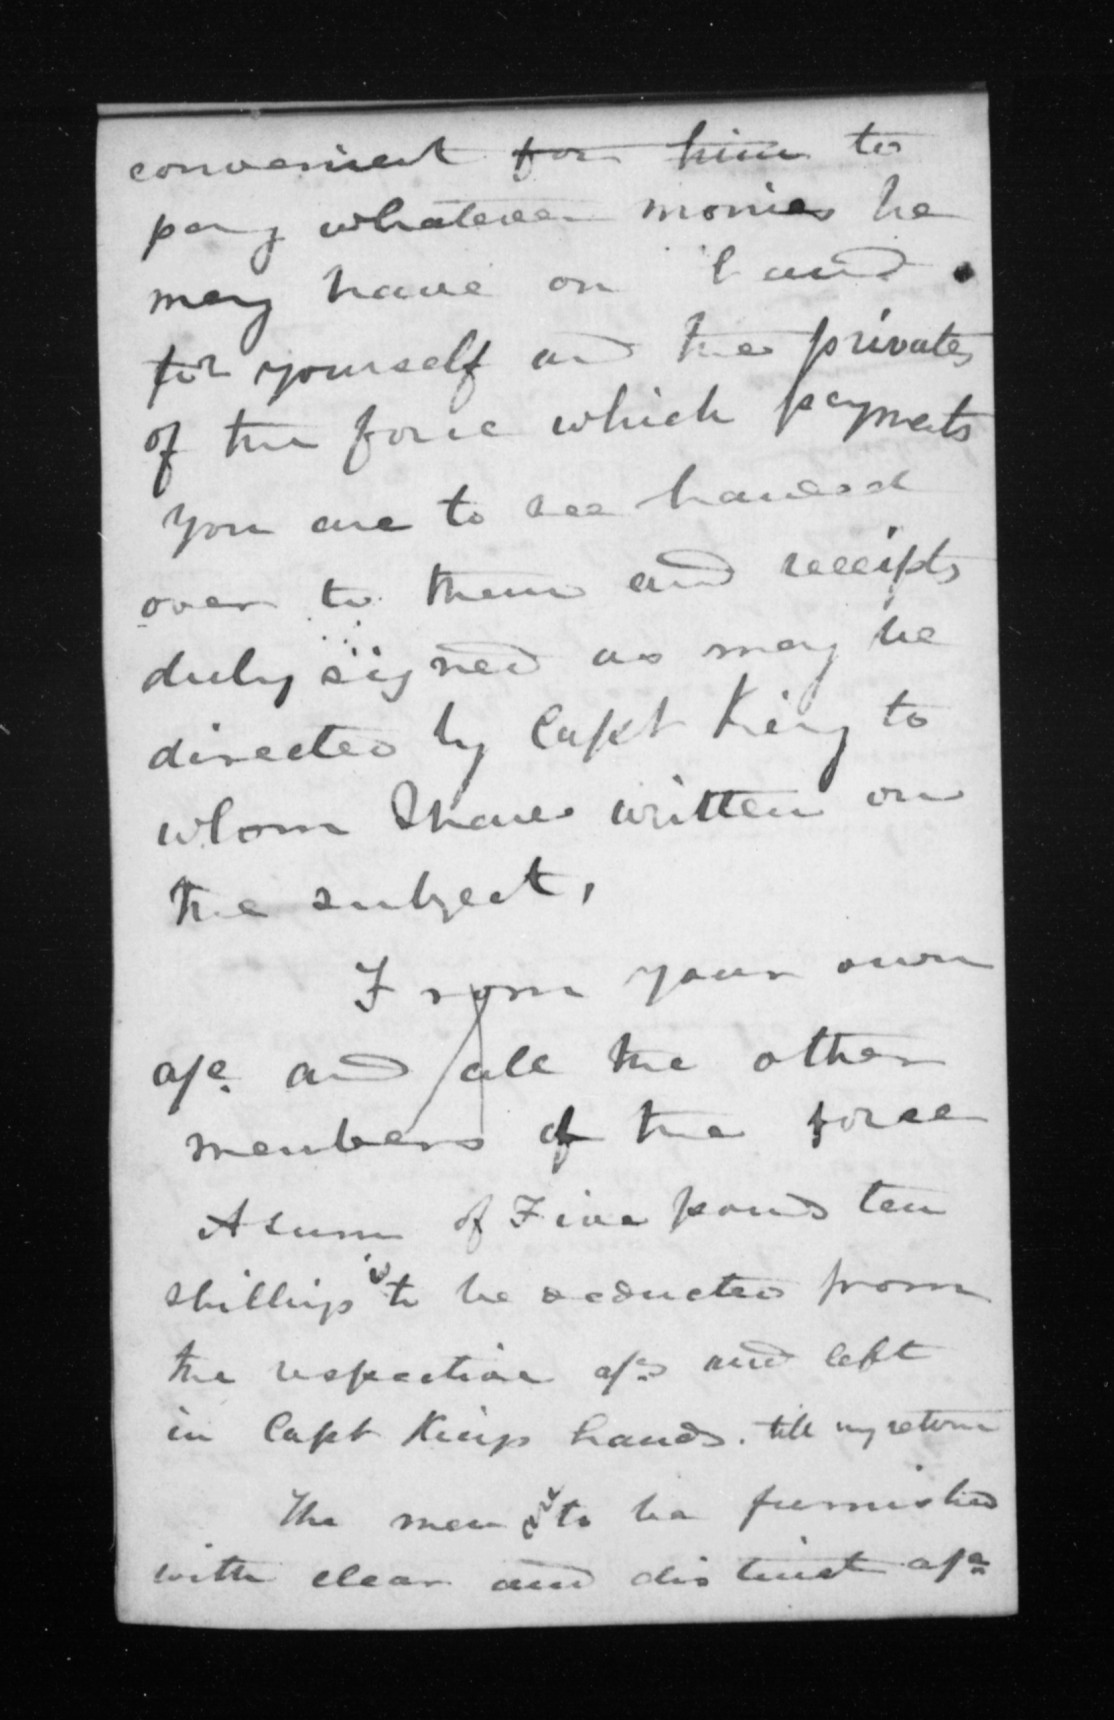 convenient for him to
pay whatever monies he
may have on hand
for yourself and the privates
of the force which payments
you are to see handed
over to them and receipts
duly signed as may be
directed by Capt King to
whom I have written on
the subject,
From your own
a/c. and all the other
members of the force
A sum of Five pound ten
shillings is to be deducted from
the respective a/cs and left
in Capt Kings hands. till my return
The men are to be furnished
with clear and distinct a/cs